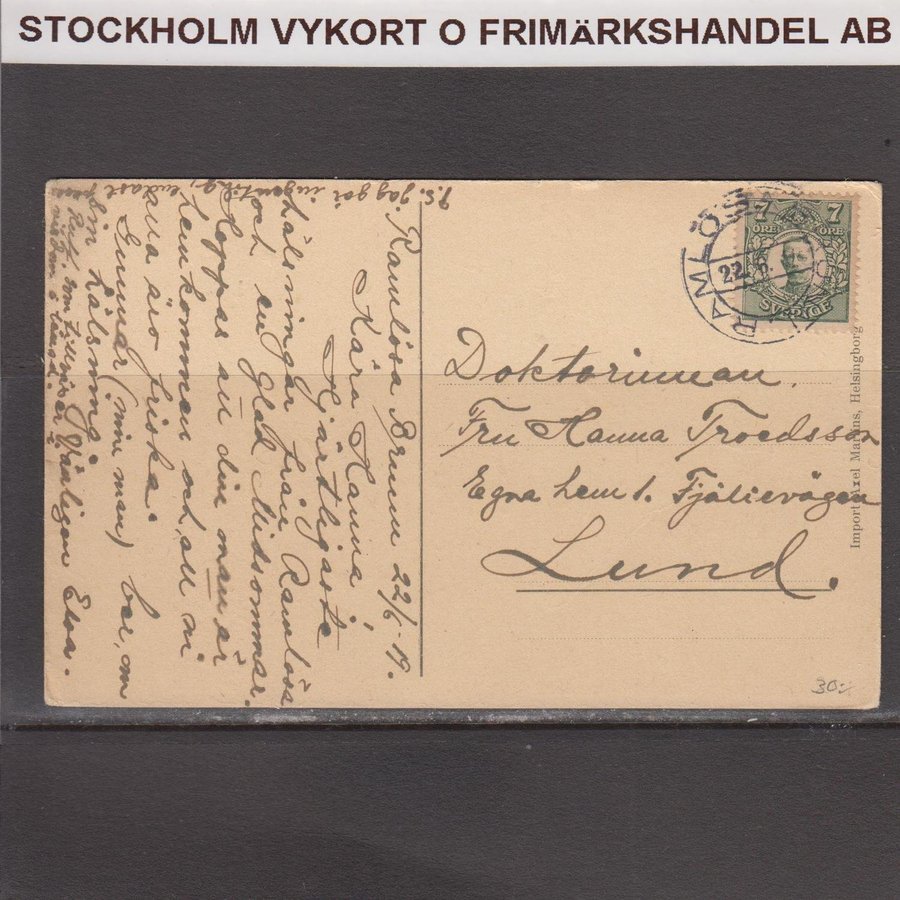 STOCKHOLM VYKORT O FRIMÄRKSHANDEL AB
Ramlösa Brunn 22/6-19.
Kära Hanna!
Hjärtligaste
hälsningar från Ramlösa
och en glad Midsommar.
Hoppas att din man är
hemkommen och att ni
alla äro friska.
Gunnar (min man) ber, om
sin hälsning
Vänligen Elsa.
P.S. Jag endast
RAMLÖSA
22.6.
7 7
ÖRE ÖRE
SVERIGE
Doktorinnan.
Fru Hanna Troedsson
Egna hem 1. Fjälievägen
Lund.
Import: Axel Martins, Helsingborg
30:-